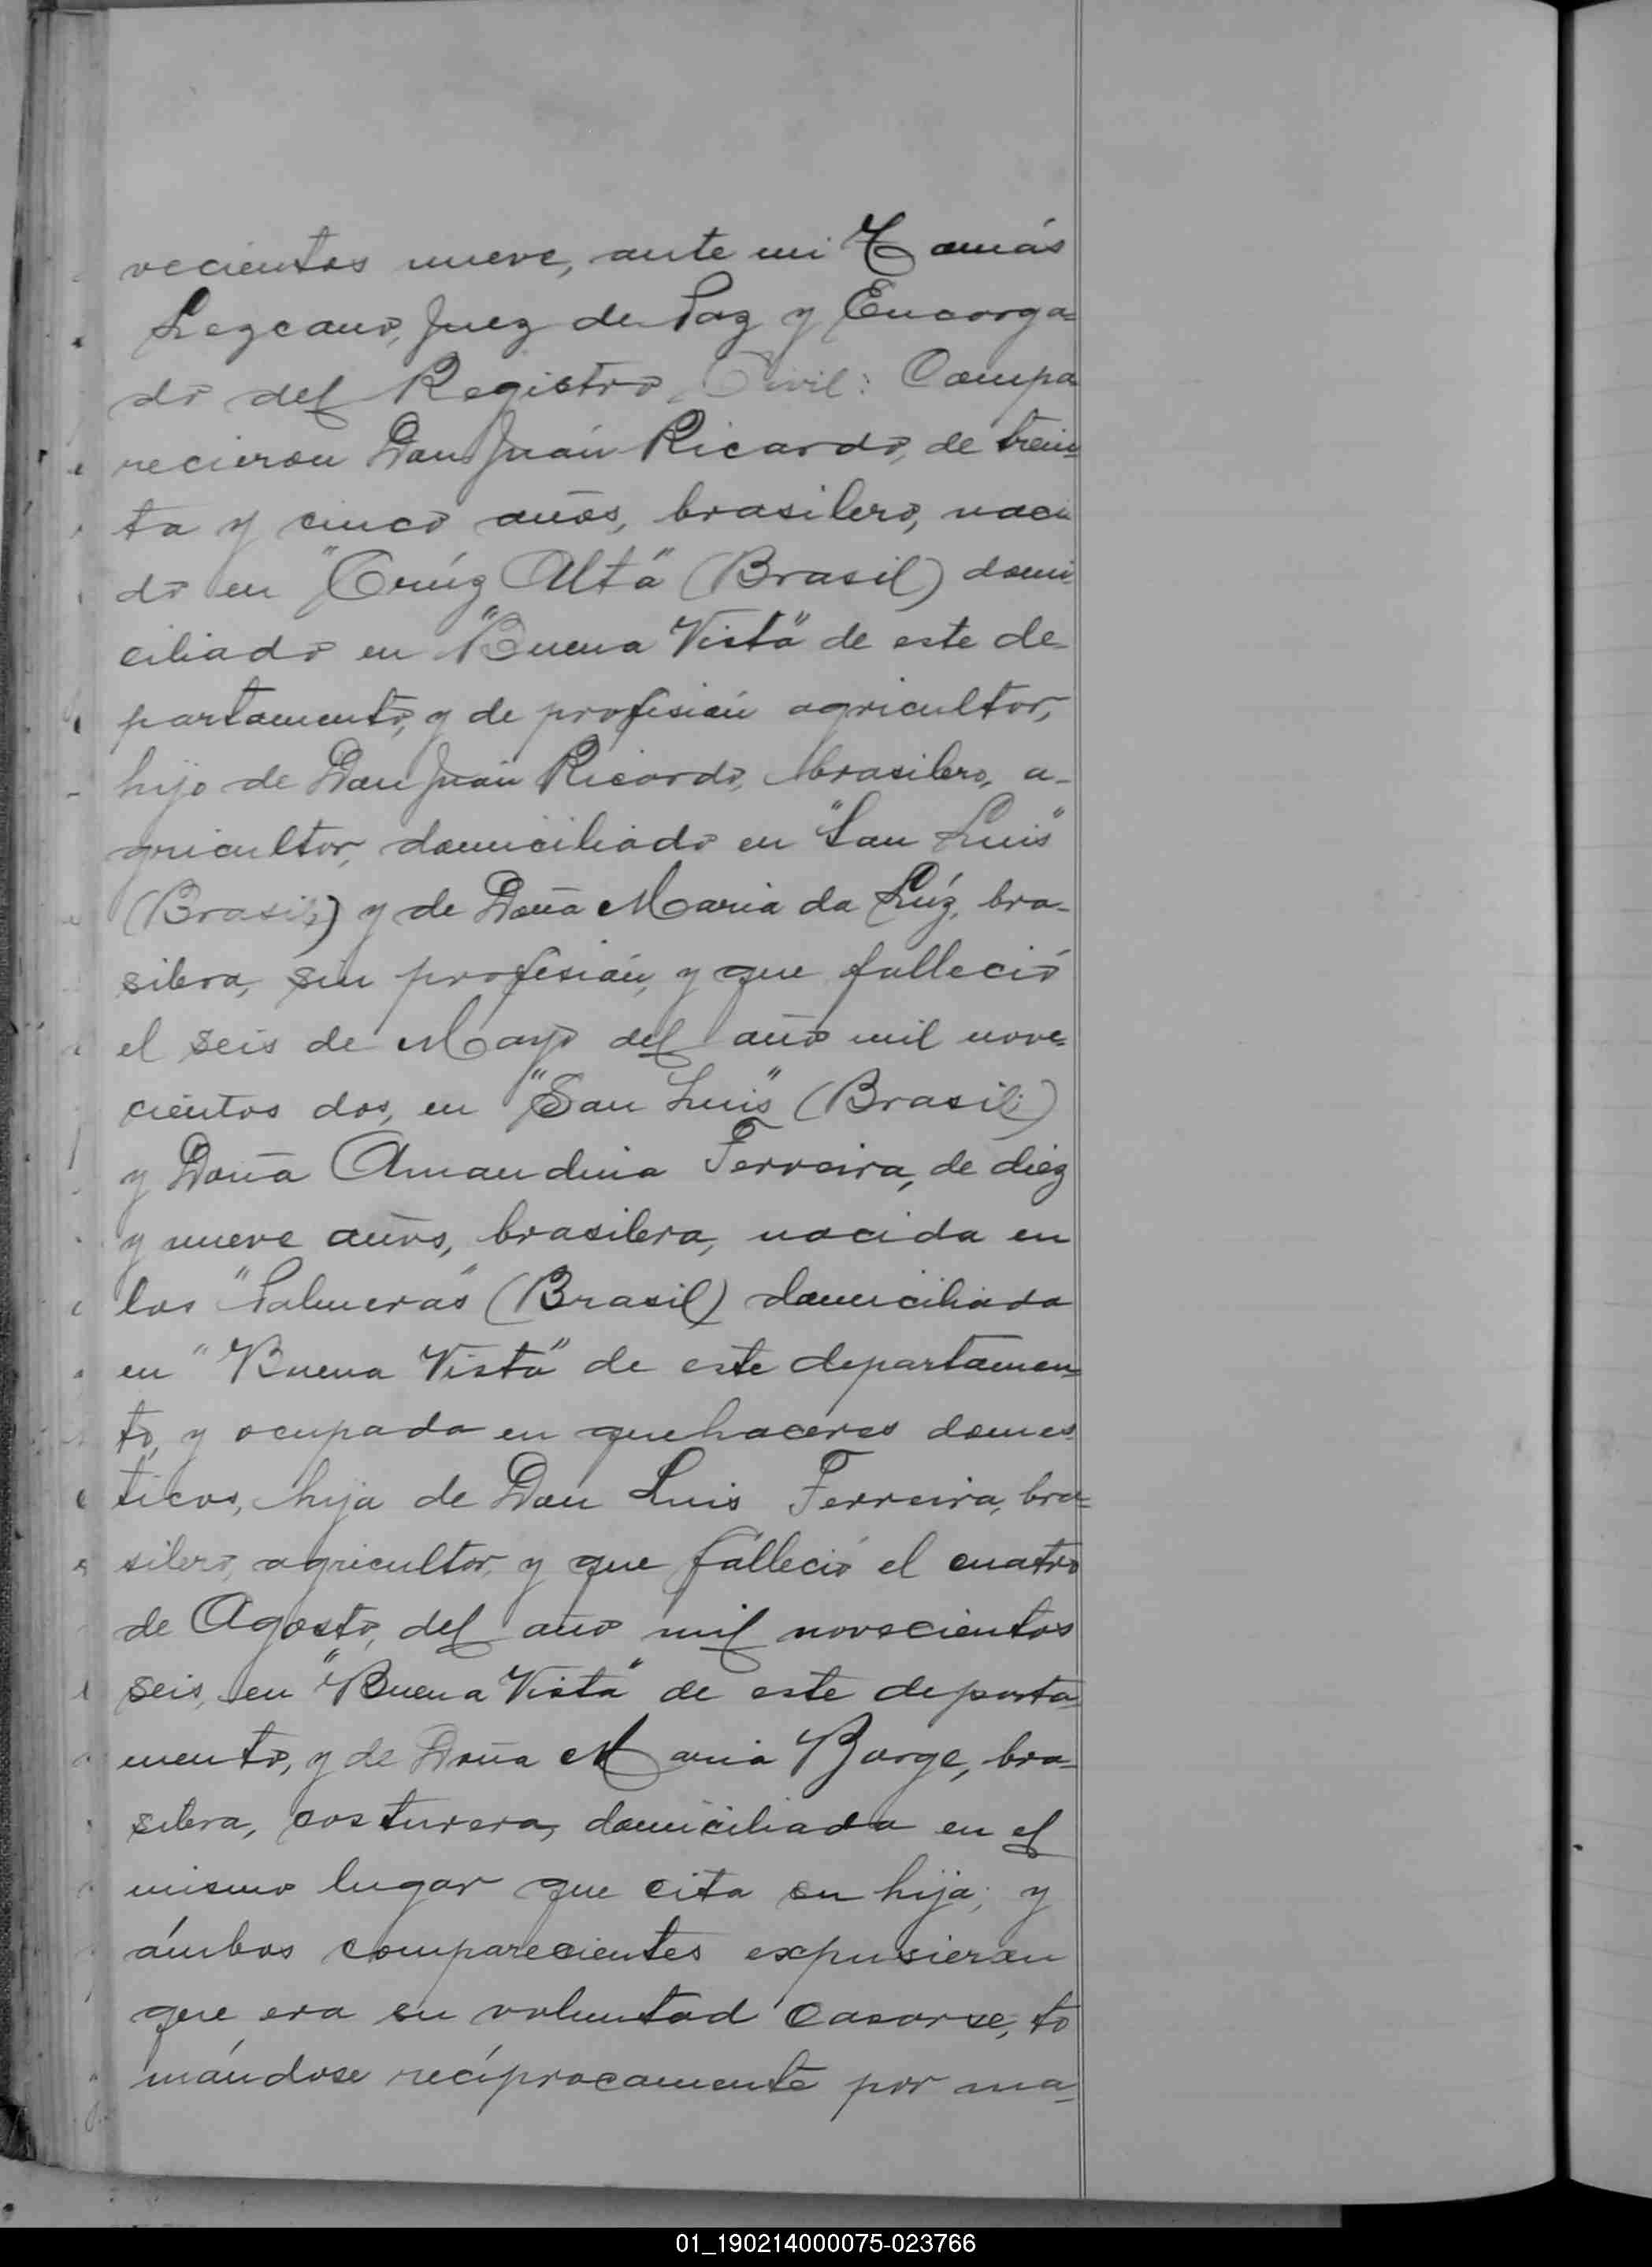 vecientos nueve, ante mi Tomás
Lezcano, Juez de Paz y Encarga=
do del Registro Civil: Compa
recieron Don Juan Ricardo, de trein=
ta y cinco años, brasilero, naci
do en "Crúz Alta" (Brasil) domi
ciliado en "Buena Vista" de este de-
partamento, y de profesión agricultor,
hijo de Don Juan Ricardo, brasilero, a-
gricultor, domiciliado en "San Luis"
(Brasil) y de Doña Maria da Lúz, bra-
silera, sin profesión, y que falleció
el seis de Mayo del año mil nove=
cientos dos, en "San Luis" (Brasil)
y Doña Amandina Ferreira, de diez
y nueve años, brasilera, nacida en
las "Palmeras" (Brasil) domiciliada
en "Buena Vista" de este departamen=
to, y ocupada en quehaceres domes
ticos, hija de Don Luis Ferreira, bra=
silero, agricultor, y que falleció el cuatro
de Agosto, del año mil novecientos
seis, en "Buena Vista" de este departa
mento, y de Doña Maria Borge, bra-
silera, costurera, domiciliada en el
mismo lugar que cita su hija; y
ámbos comparecientes expusieron
que era su voluntad casarse, to
mándose recíprocamente por ma-
01_190214000075-023766